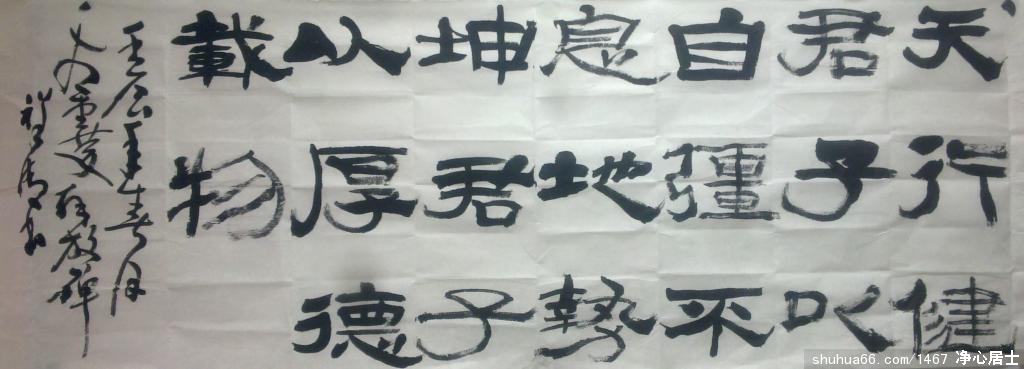 天行健
君子以
自彊不
息地勢
坤君子
以厚德
載物
春月
shuhua66.com/1467 净心居士